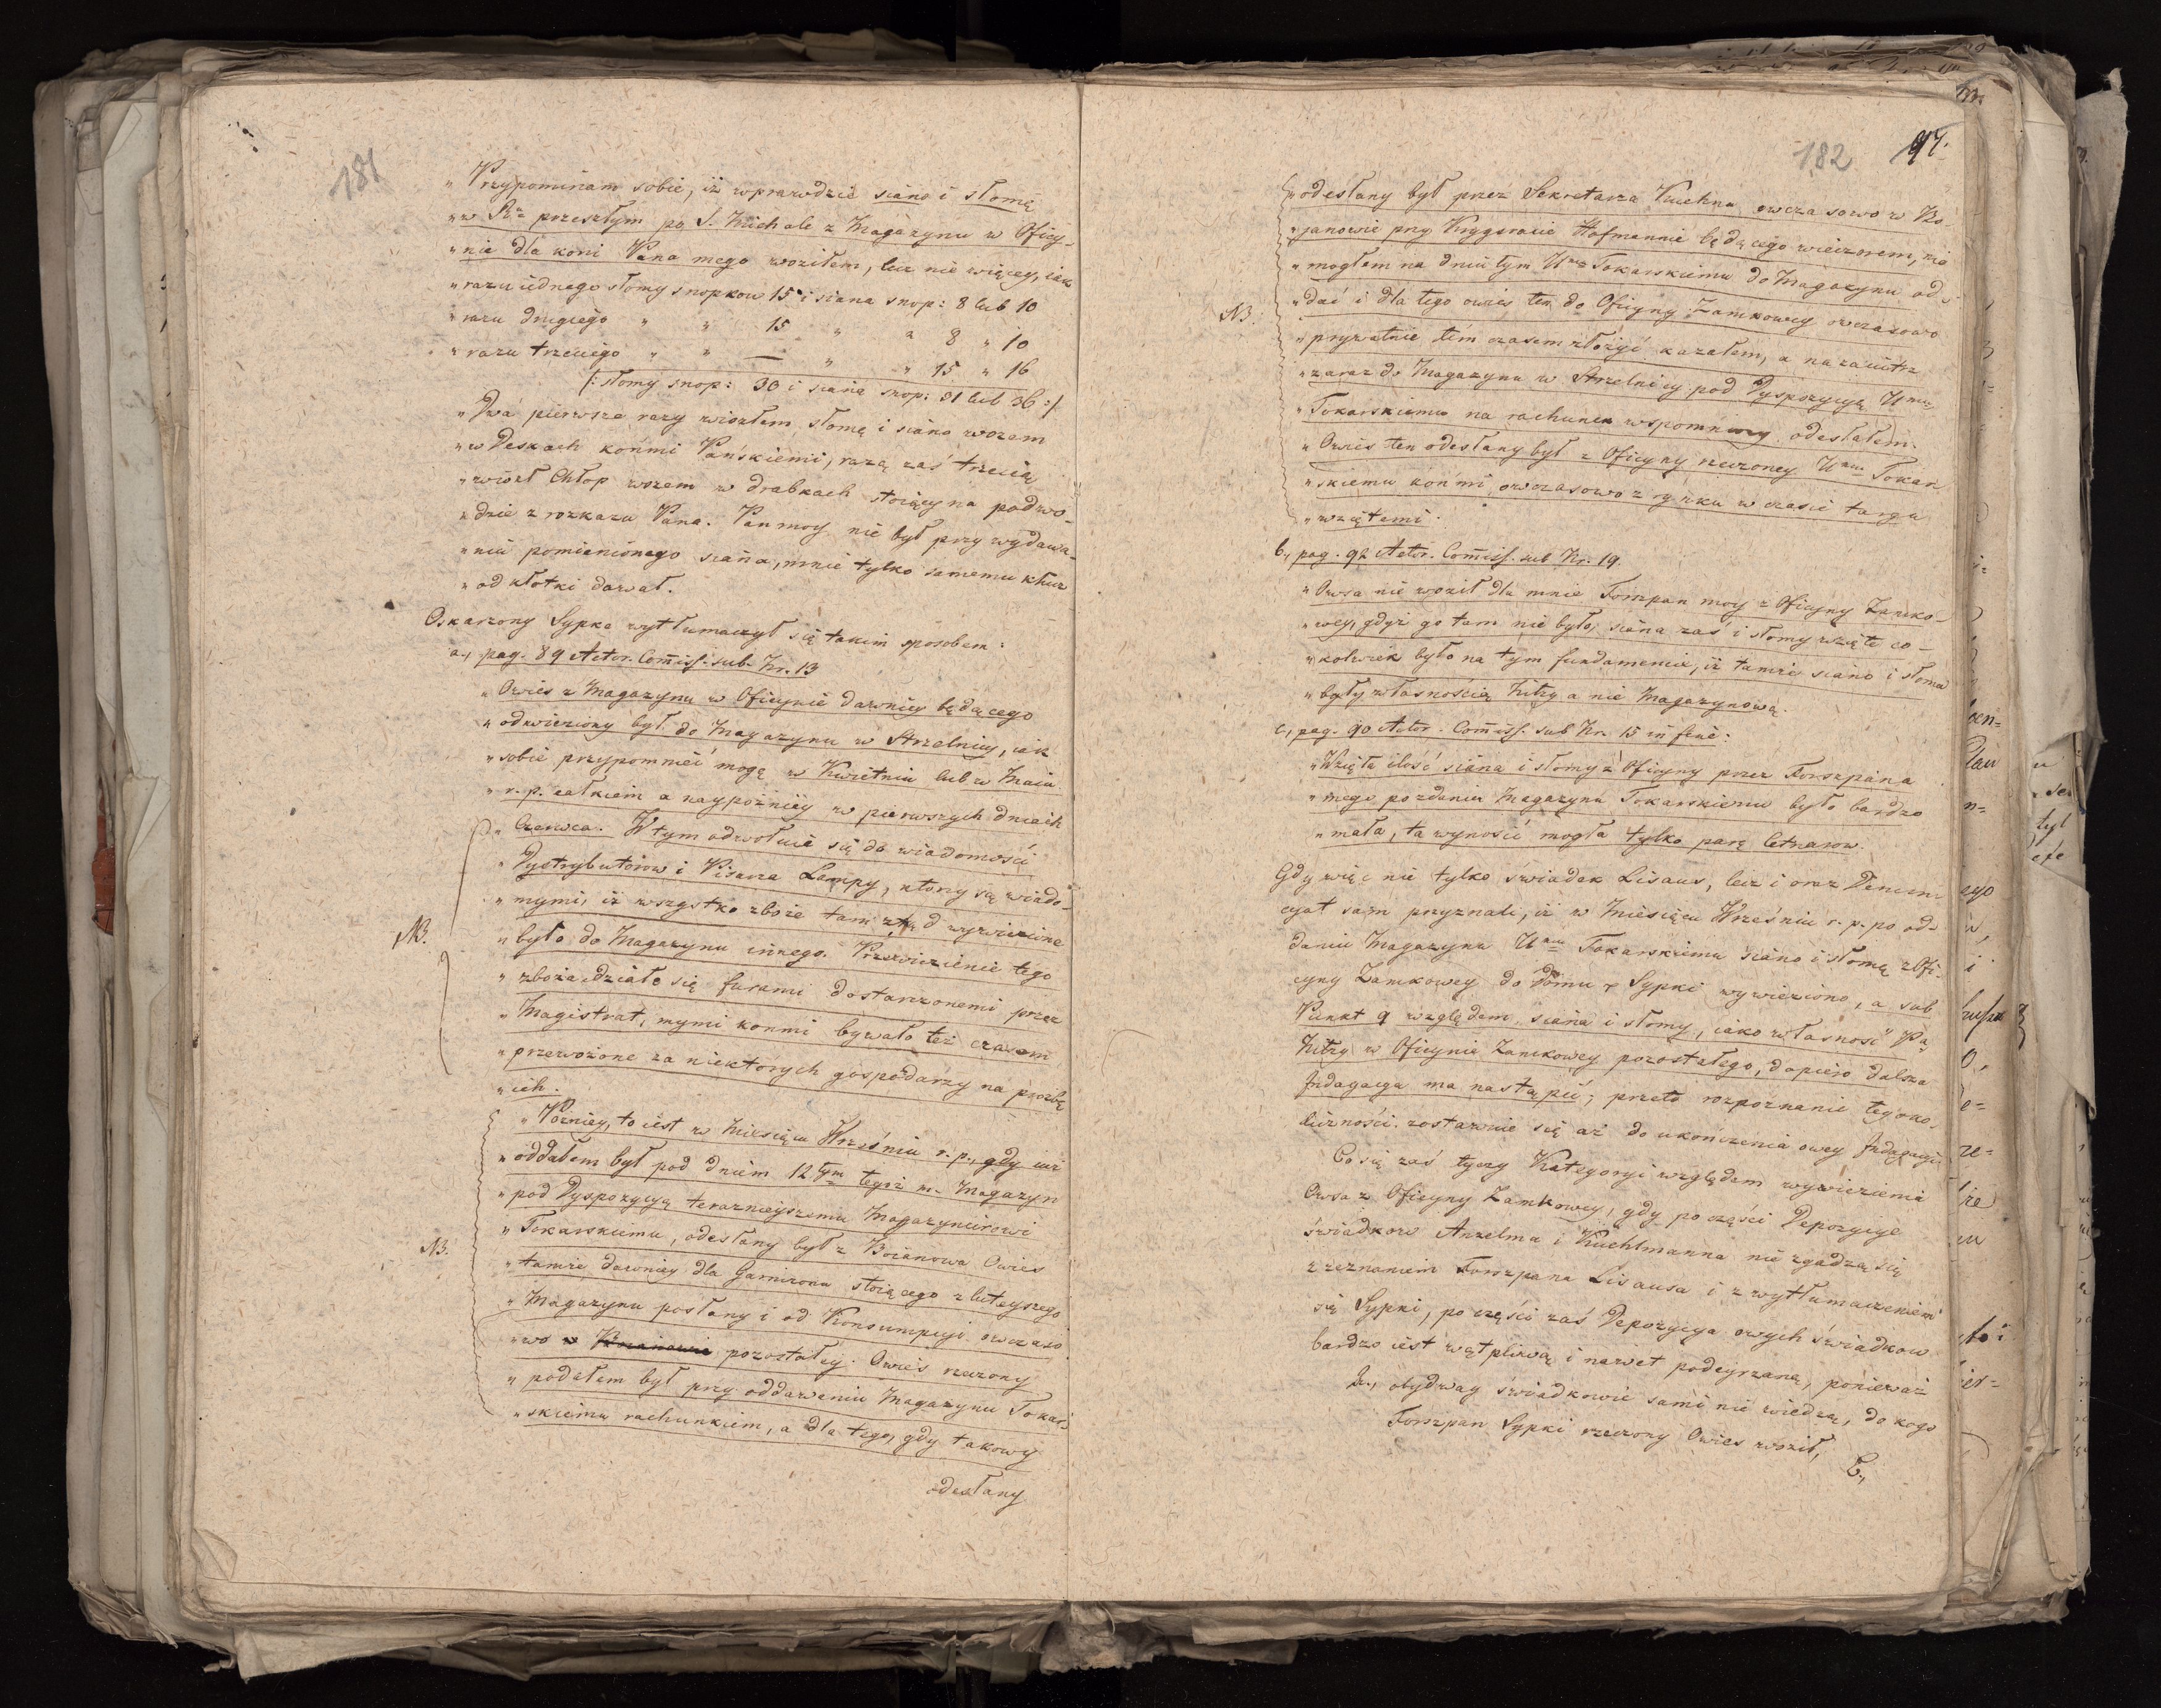 181
„Przypominam sobie, iż wprawdzie siano i słomę
„w Rz przeszłym po S. Michale z Magazynu w Oficy-
„nie dla koni Pana mego woziłem, lecz nie więcey, iak
„razu iednego słomy snopkow 15 i siana snop: 8 lub 10
„razu drugiego „ „ 15 „ a 8 „ 10
„razu trzeciego „ „ — „ „ 15 „ 16
/: słomy snop: 30 i siana snop: 31 lub 36 :/
„Dwa pierwsze razy wiozłem słomę i siano wozem
„w Deskach końmi Pańskiemi, razą zaś trzecią
„wiozł Chłop wozem w drabkach stoiący na podwo-
„dzie z rozkazu Pana. Pan moy nie był przy wydawa-
„niu pomienionego siana, mnie tylko samemu klucz
„od kłotki dawał.
Oskarzony Sypka wytłumaczył się takim sposobem:
a., pag. 89 Actor. Comiss. sub Nr. 13
„Owies z Magazynu w Oficynie dawniey będącego
„odwieziony był do Magazynu w Strzelnicy, iak
„sobie przypomnieć mogę w Kwietniu lub w Maiu
„r. p. całkiem a naypóżniey w pierwszych dniach
„Czerwca. W tym odwołuie się do wiadomości
„Dystrybutorow i Pisarza Lempy, ktorzy są wiado-
„mymi, iż wszystko zboże tam ztąd wywiezione
NB.
„było do Magazynu innego. Przewiezienie tego
„zboża działo się furami dostarczonemi przez
„Magistrat, mymi konmi bywało też czasem
„przewożone za niektorych gospodarzy na prozbę
„ich.
„Pożniey, to iest w Miesiącu Wrześniu r. p., gdy iuż
„oddałem był pod dniem 12tym tegoż m. Magazyn
„pod Dyspozycyą teraznieyszemu Magazynierowi
NB.
„Tokarskiemu, odesłany był z Boianowa Owies
„tamże dawniey dla Garnizonu stoiącego z tuteyszego
„Magazynu posłany i od Konsumpcyi owczaso
„wo w Boianowie pozostałey. Owies rzeczony
„podałem był przy oddawaniu Magazynu Tokar-
„skiemu rachunkiem, a dla tego, gdy takowy
odesłany
182 97.
„odesłany był przez Sekretarza Kuehna owczasowo w Bo
„janowie przy Krygsracie Hofmannie będącego wieczorem, nie
„mogłem na dniu tym Umu Tokarskiemu do Magazynu od-
NB.
„dać i dla tego owies ten do Oficyny Zamkowey owczasowo
„prywatnie tém czasem złożyć kazałem, a nazaiutrz
„zaraz do Magazynu w Strzelnicy pod Dyspozycyą Umu
„Tokarskiemu na rachunek wspomniony odesłałem.
„Owies ten odesłany był z Oficyny rzeczoney Umu Tokar
„skiemu końmi owczasowo z rynku w czasie targu
„wziętemi.
b., pag. 92 Actor. Comiss. sub Nr. 19.
„Owsa nie woził dla mnie Forszpan moy z Oficyny Zamko-
„wey, gdyż go tam nie było; siana zaś i słomy wzięte co-
„kolwiek było na tym fundamencie, iż tamże siano i słoma
„były własnością Kitzy a nie Magazynową.
c., pag. 90 Actor. Comiss. sub Nr. 15 in fine:
„Wzięta ilość siana i słomy z Oficyny przez Forszpana
„mego po zdaniu Magazynu Tokarskiemu było bardzo
„mała, ta wynosić mogła tylko parę Cetnarow.
Gdy więc nie tylko świadek Lisaus, lecz i oraz Denun-
cyat sam przyznali, iż w Miesiącu Wrześniu r. p. po od-
daniu Magazynu Umu Tokarskiemu siano i słomę z Ofi-
cyny Zamkowey do Domu Sypki wywieziono, a sub
Punkt 9 względem siana i słomy, iako własność Pa
Kitzy w Oficynie Zamkowey pozostałego, dopiero dalsza
Indagacya ma nastąpić; przeto rozpoznanie tey oko-
liczności zostawuie się aż do ukończenia owey Indagacyi
Co się zaś tyczy Kategoryi względem wywiezienia
Owsa z Oficyny Zamkowey, gdy po części Depozycye
świadkow Anzelma i Kuehlmanna nie zgadzą się
z zeznaniem Forszpana Lisausa i z wytłumaczeniem
się Sypki, po części zaś Depozycya owych świadkow
bardzo iest wątpliwą i nawet podeyrzaną, ponieważ
a., obydway świadkowie sami nie wiedzą, do kogo
Forszpan Sypki rzeczony Owies woził,
b.,